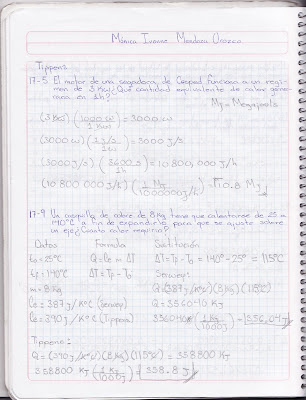 Mónica Ivonne Mendoza Orozco
Tippens
17-5 El motor de una segadora de Cesped funciona a un regi-
men de 3 Kw ¿Que cantidad equivalente de calor gene-
rara en 1h?
Mj = Megajouls
(3 Kw)(1000 w/1 Kw) = 3000 w
(3000 w)(1 J/s/1 w) = 3000 J/s
(3000 J/s)(3600 s/1h) = 10 800,000 J/h
(10 800 000 J/h)(1 MJ/1000000 J/h) = 10.8 MJ
17-9 Un casquillo de cobre de 8 Kg tiene que calentarse de 25 a
140°C a fin de expandirlo para que se ajuste sobre
un eje ¿Cuanto calor requirio?
Datos Formula Sustitución
to = 25°C Q = Ce m ΔT ΔT = Tf - To = 140° - 25° = 115°C
tf = 140°C ΔT = Tf - To
m = 8 Kg Q = (387 J/K°C)(8 Kg)(115°C)
Ce = 387 J/K°C Q = 356040 KJ
Ce = 390 J/K°C (Tippens) 356040 (1 KJ/1000 J) = 356.04 J
Tippens:
Q = (390 J/K°C)(8 Kg)(115°C) = 358800 KJ
358800 KJ (1 KJ/1000 J) = 358.8 J